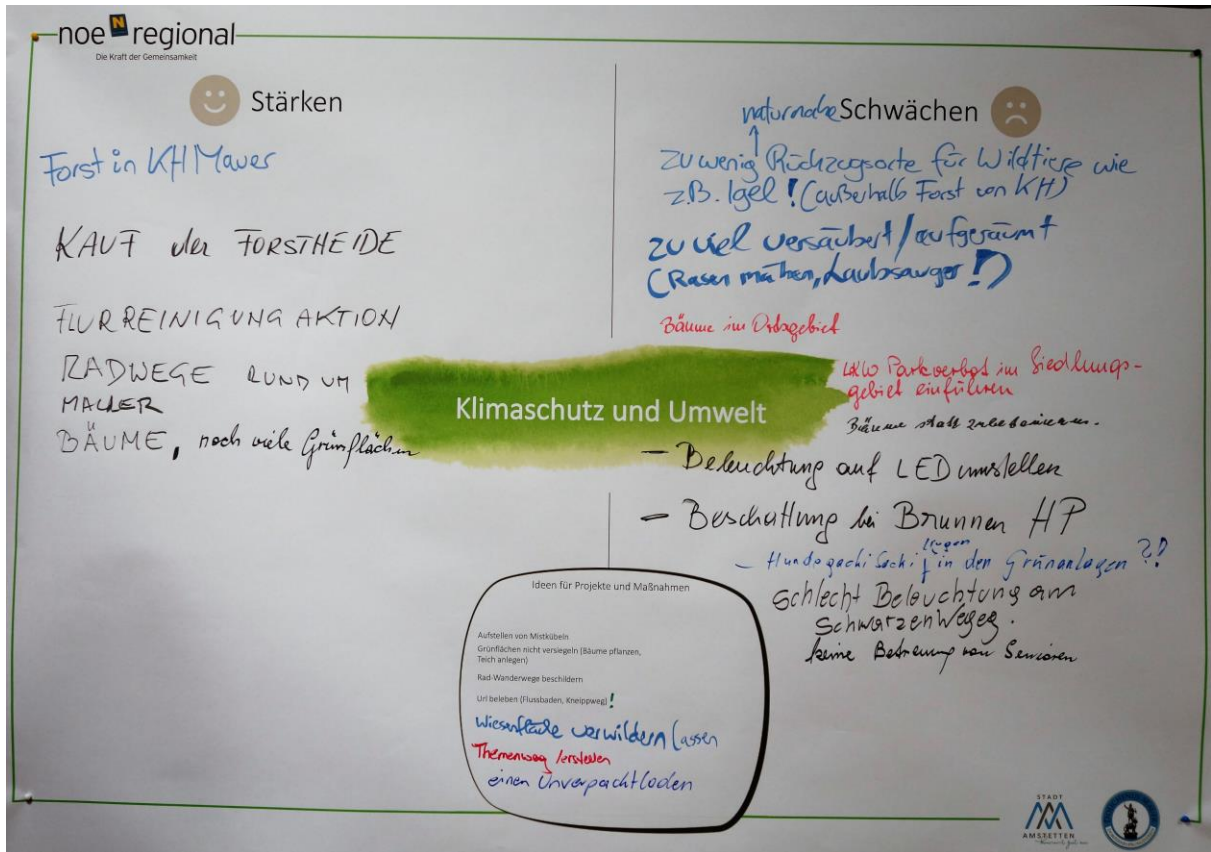 noe N regional
Die Kraft der Gemeinsamkeit
Stärken
Forst in KH Mauer
KAUF der FORSTHEIDE
FLURREINIGUNG AKTION
RADWEGE RUND UM
MAUER
BÄUME, noch viele Grünflächen
naturnahe Schwächen
zu wenig Rückzugsorte für Wildtiere wie
z.B. Igel! (außerhalb Forst von KH)
zu viel versäubert/aufgeräumt
(Rasen mähen, Laubsauger!)
Bäume im Ortsgebiet
LKW Parkverbot im Siedlungs-
gebiet einführen
Bäume statt
Klimaschutz und Umwelt
- Beleuchtung auf LED umstellen
- Beschattung bei Brunnen HP
- Hundegacki Sacki liegen in den Grünanlagen ?!
Schlecht Beleuchtung am
Schwarzen Weg
keine Betreuung von Senioren
Ideen für Projekte und Maßnahmen
Aufstellen von Mistkübeln
Grünflächen nicht versiegeln (Bäume pflanzen,
Teich anlegen)
Rad-Wanderwege beschildern
Url beleben (Flussbaden, Kneippweg) !
Wiesenfläche verwildern lassen
Themenweg erstellen
einen Unverpacktladen
STADT
AMSTETTEN